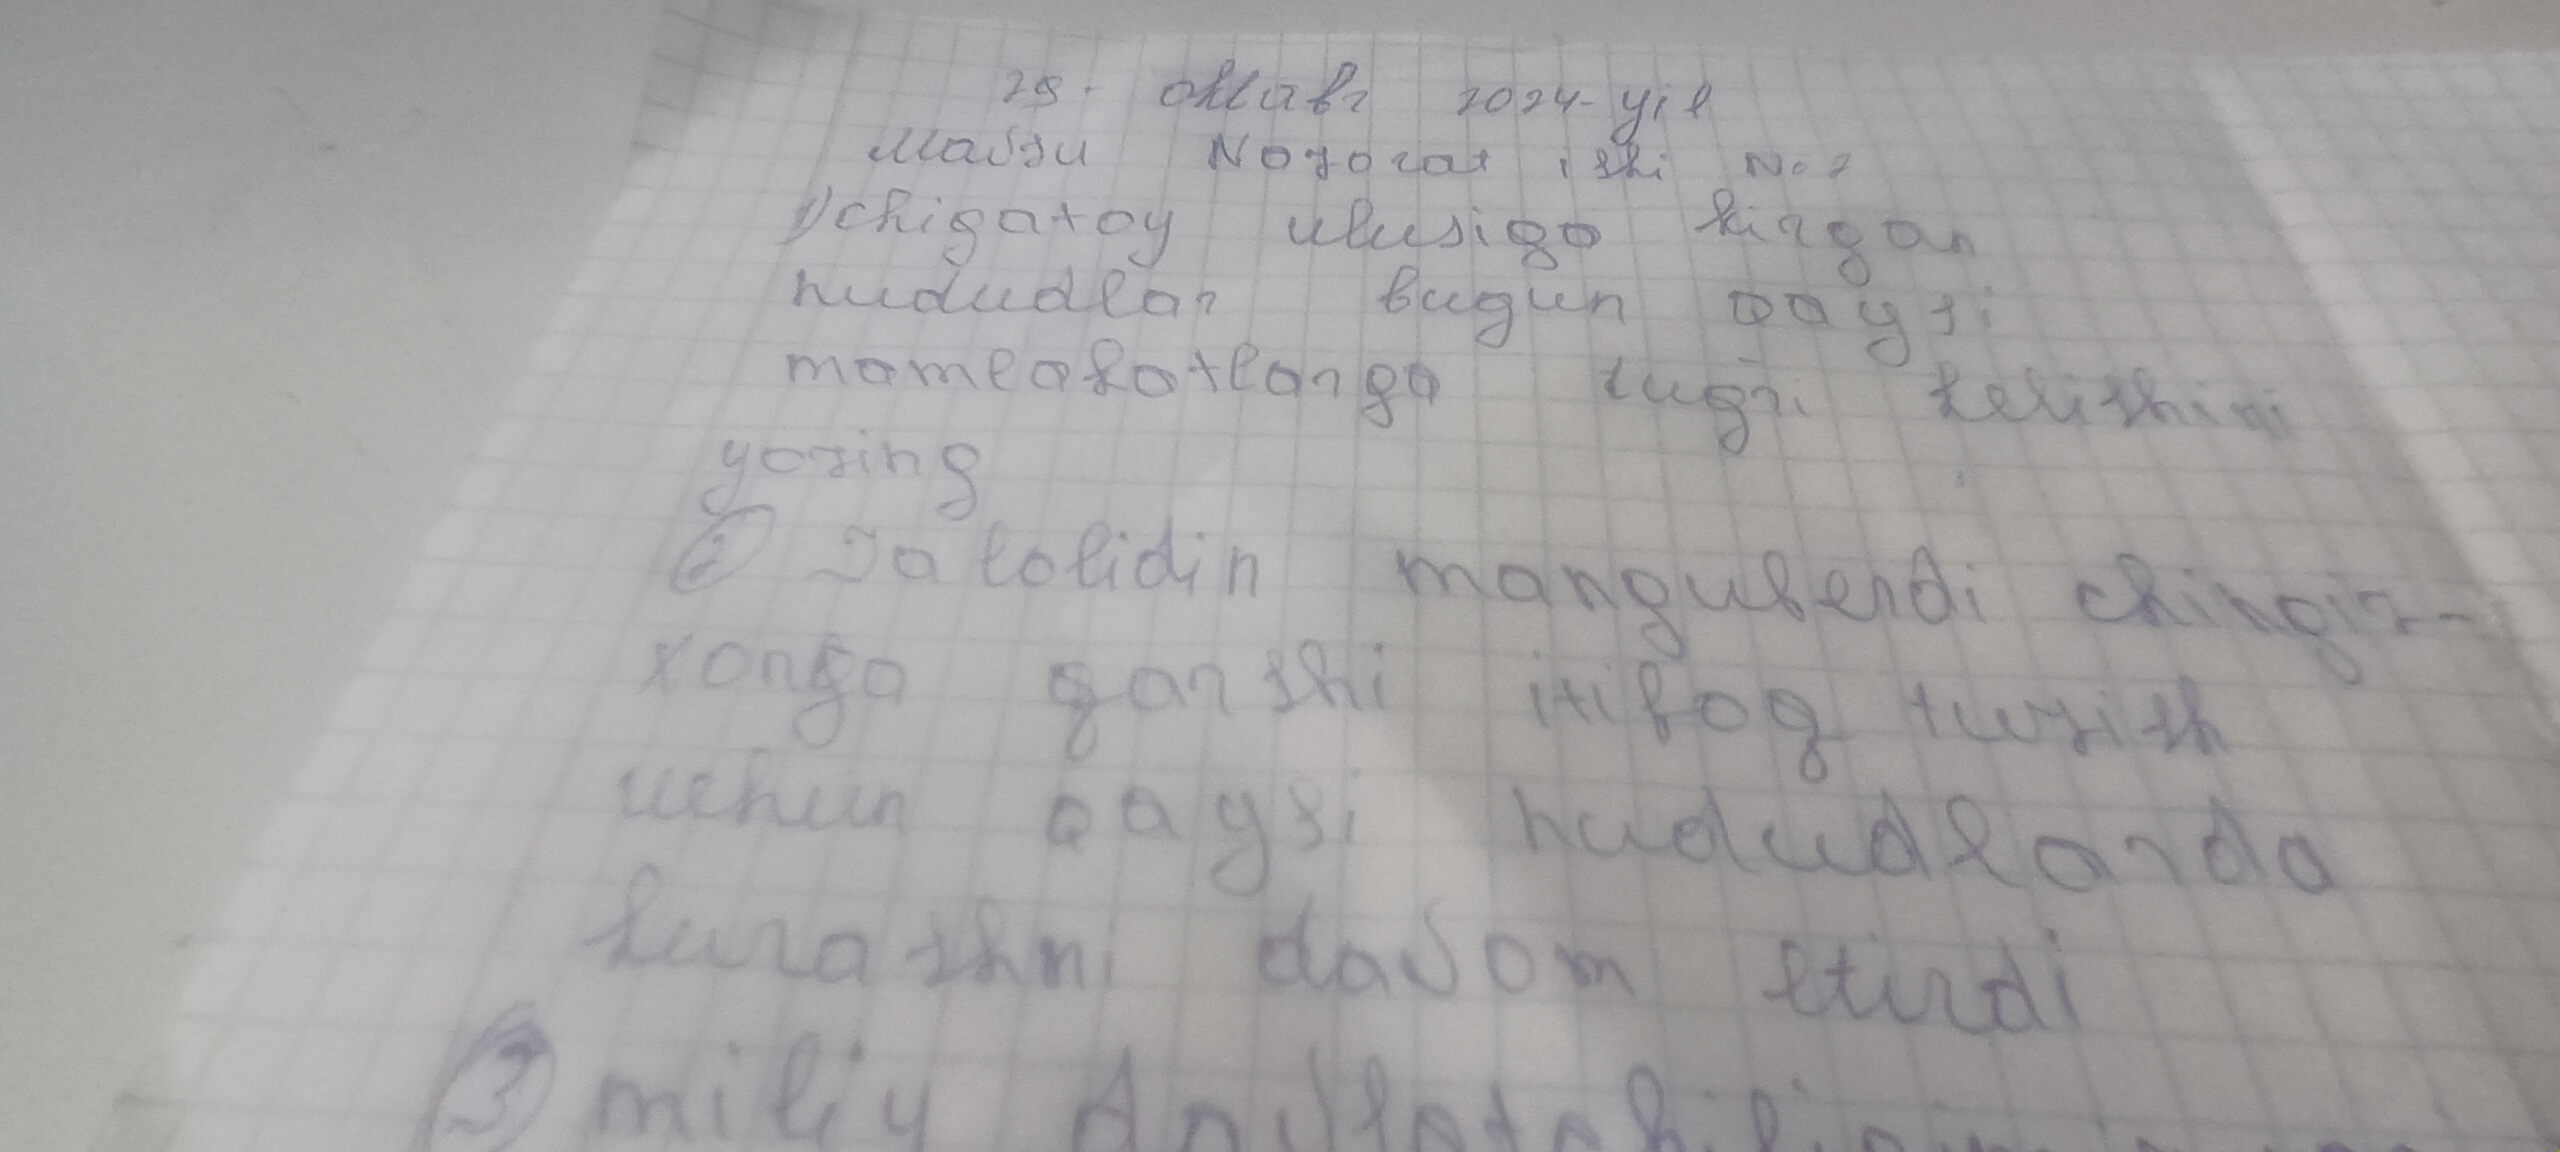 29. oktabr 2024-yil
Mavzu Nozorat ishi No 2
1) chigatoy ulusiga kirgan
hududlar bugun qaysi
mamlakatlarga tugri kelishini
yozing
② Jalolidin manguberdi chingiz-
xonga qarshi itifoq tuzish
uchun qaysi hududlarda
kurashni davom etirdi
③ miliy